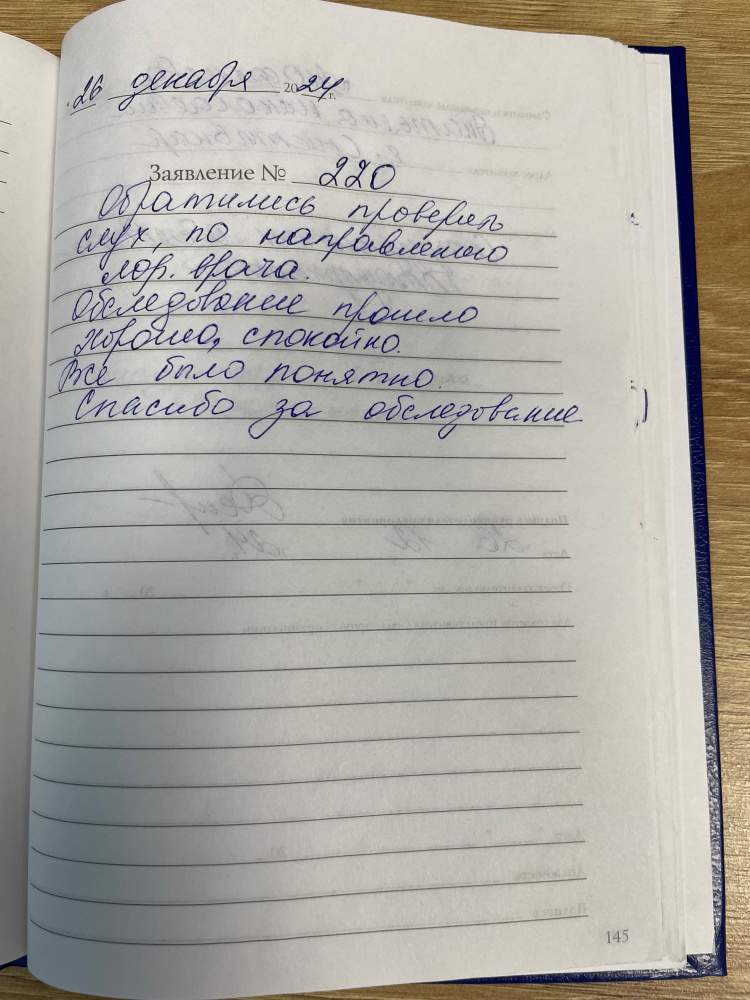 26 декабря 2024 г.
Заявление № 220
Обратились проверить
слух, по направлению
лор. врача.
Обследование прошло
хорошо, спокойно.
Все было понятно.
Спасибо за обследование
145